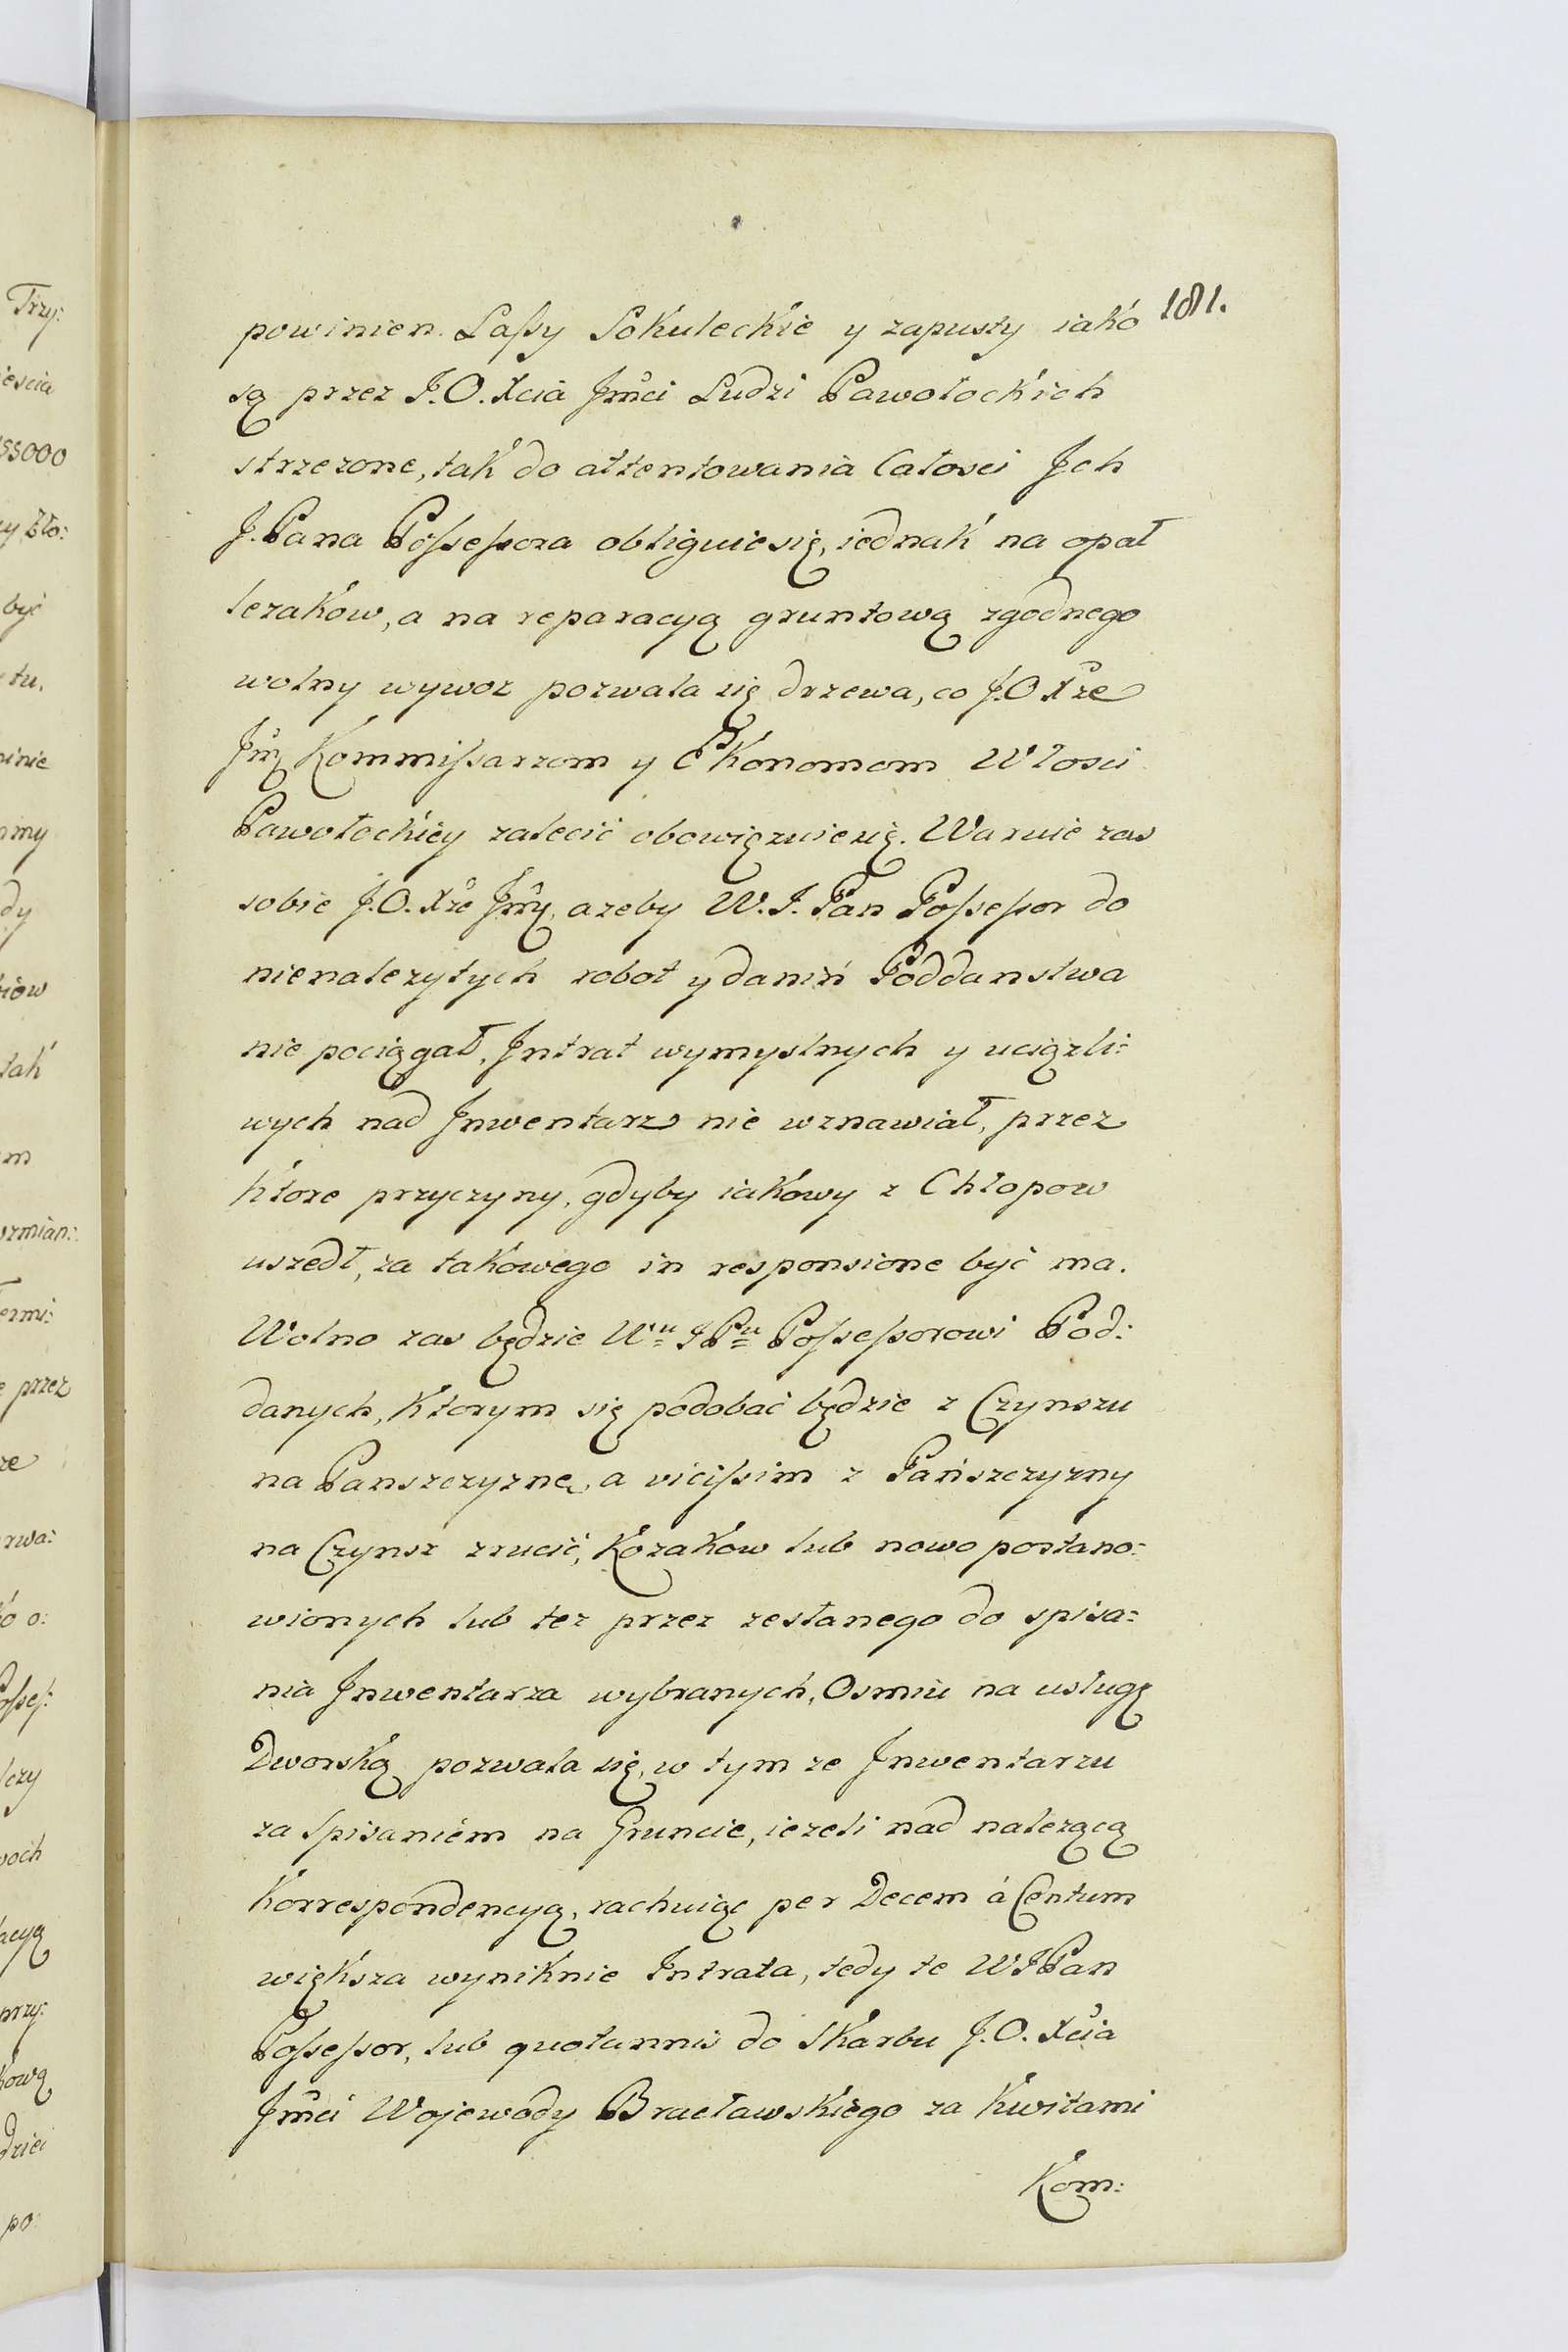 181.
powinien. Lassy Sokuleckie y zapusty iako
są przez J. O. Xcia Jmci Ludzi Pawołockich
strzezone, tak do attentowania Całosci Jch
J. Pana Possessora obliguie się, iednak na opał
lezaków, a na reparacyą gruntową zgodnego
wolny wywoz pozwala się drzewa, co J. O Xze
Jmć Kommissarzom y Ekonomom Włosci
Pawołockiey zalecić obowięzuie się. Waruie zas
sobie J. O. Xze Jmć, azeby W. J. Pan Possessor do
nienalezytych robot y danin Poddanstwa
nie pociągał, Jntrat wymyslnych y uciązli:
wych nad Jnwentarz nie wznawiał, przez
ktore przyczyny, gdyby iakowy z Chłopow
uszedł, za takowego in responsione być ma.
Wolno zas będzie Wu JPu Possessorowi Pod:
danych, Ktorym się podobać będzie z Czynszu
na Panszczyznę, a vicissim z Pańszczyzny
na Czynsz zrucić, Kozaków lub nowo postano:
wionych lub tez przez zesłanego do spisa:
nia Jnwentarza wybranych, Osmiu na usługę
Dworską pozwala się, w tym ze Jnwentarzu
za spisaniem na Gruncie, iezeli nad nalezącą
Korrespondencyą, rachuiąc per Decem á Centum
większa wyniknie Intrata, tedy te WJPan
Possessor, lub quotannis do Skarbu J. O. Xcia
Jmci Wojewody Bracławskiego za Kwitami
Kom: